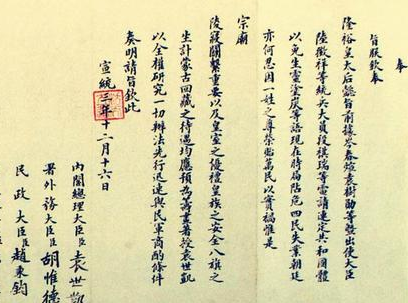 奉
旨朕欽奉
隆裕皇太后懿旨前據岑春煊袁樹勛等暨出使大臣
陸徵祥等統兵大員段祺瑞等電請速定共和國體
以免生靈塗炭等語現在時局阽危四民失業朝廷
亦何忍因一姓之尊榮貽萬民以實禍惟是
宗廟
陵寢關繫重要以及皇室之優禮皇族之安全八旗之
生計蒙古回藏之待遇均應預為籌畫著授袁世凱
以全權研究一切辦法先行迅速與民軍商酌條件
奏明請旨欽此
宣統三年十二月十六日
內閣總理大臣臣袁世凱
署外務大臣臣胡惟德
民政大臣臣趙秉鈞